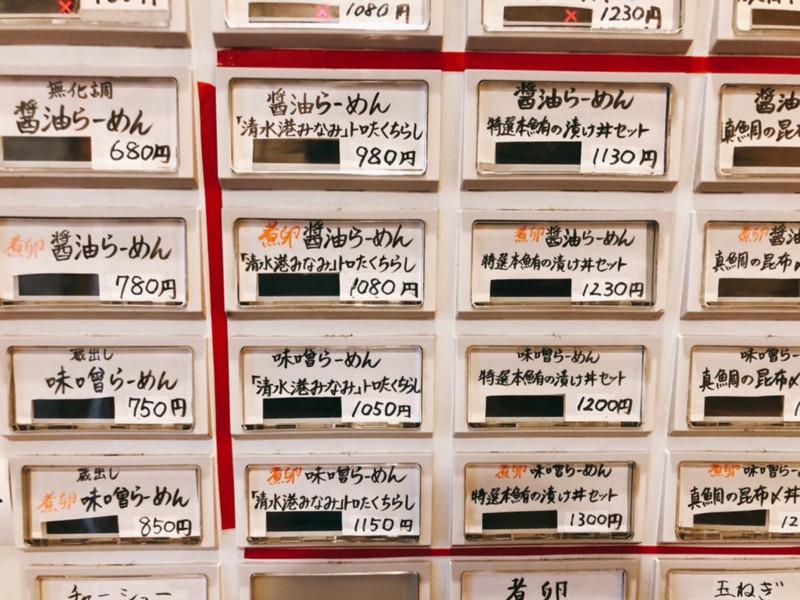 1080円
1230円
無化調
醤油らーめん
680円
醤油らーめん
「清水港みなみ」トロたくちらし
980円
醤油らーめん
特選本鮪の漬け丼セット
1130円
醤油
真鯛の昆布
煮卵 醤油らーめん
780円
煮卵 醤油らーめん
「清水港みなみ」トロたくちらし
1080円
煮卵 醤油らーめん
特選本鮪の漬け丼セット
1230円
煮卵 醤油
真鯛の昆布〆
蔵出し
味噌らーめん
750円
味噌らーめん
「清水港みなみ」トロたくちらし
1050円
味噌らーめん
特選本鮪の漬け丼セット
1200円
味噌らー
真鯛の昆布〆
蔵出し
煮卵 味噌らーめん
850円
煮卵 味噌らーめん
「清水港みなみ」トロたくちらし
1150円
煮卵 味噌らーめん
特選本鮪の漬け丼セット
1300円
煮卵 味噌らー
真鯛の昆布〆丼
チャーシュー
煮卵
玉ねぎ